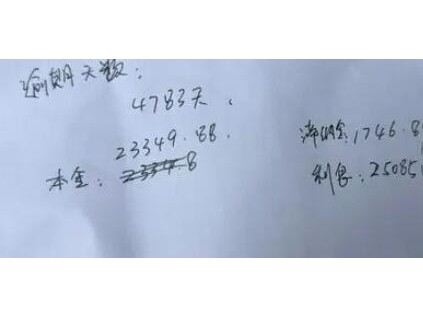 逾期天数：
4783天.
23349.88.
本金：
滞纳金：1746.8
利息：25085